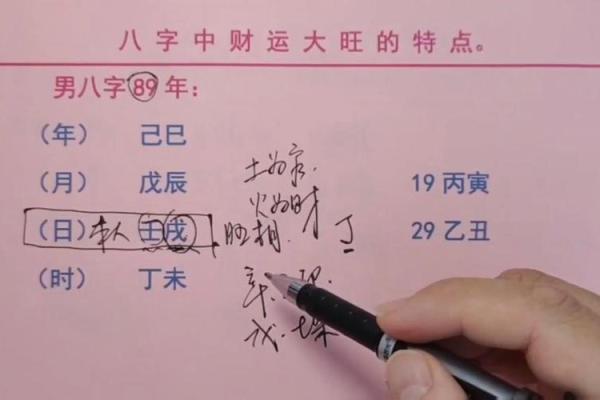 八字中财运大旺的特点。
男八字89年：
（年） 己巳
（月） 戊辰 19 丙寅
（日） 本人 壬戌 29 乙丑
（时） 丁未
土为家.
火为时
旺相. 丁